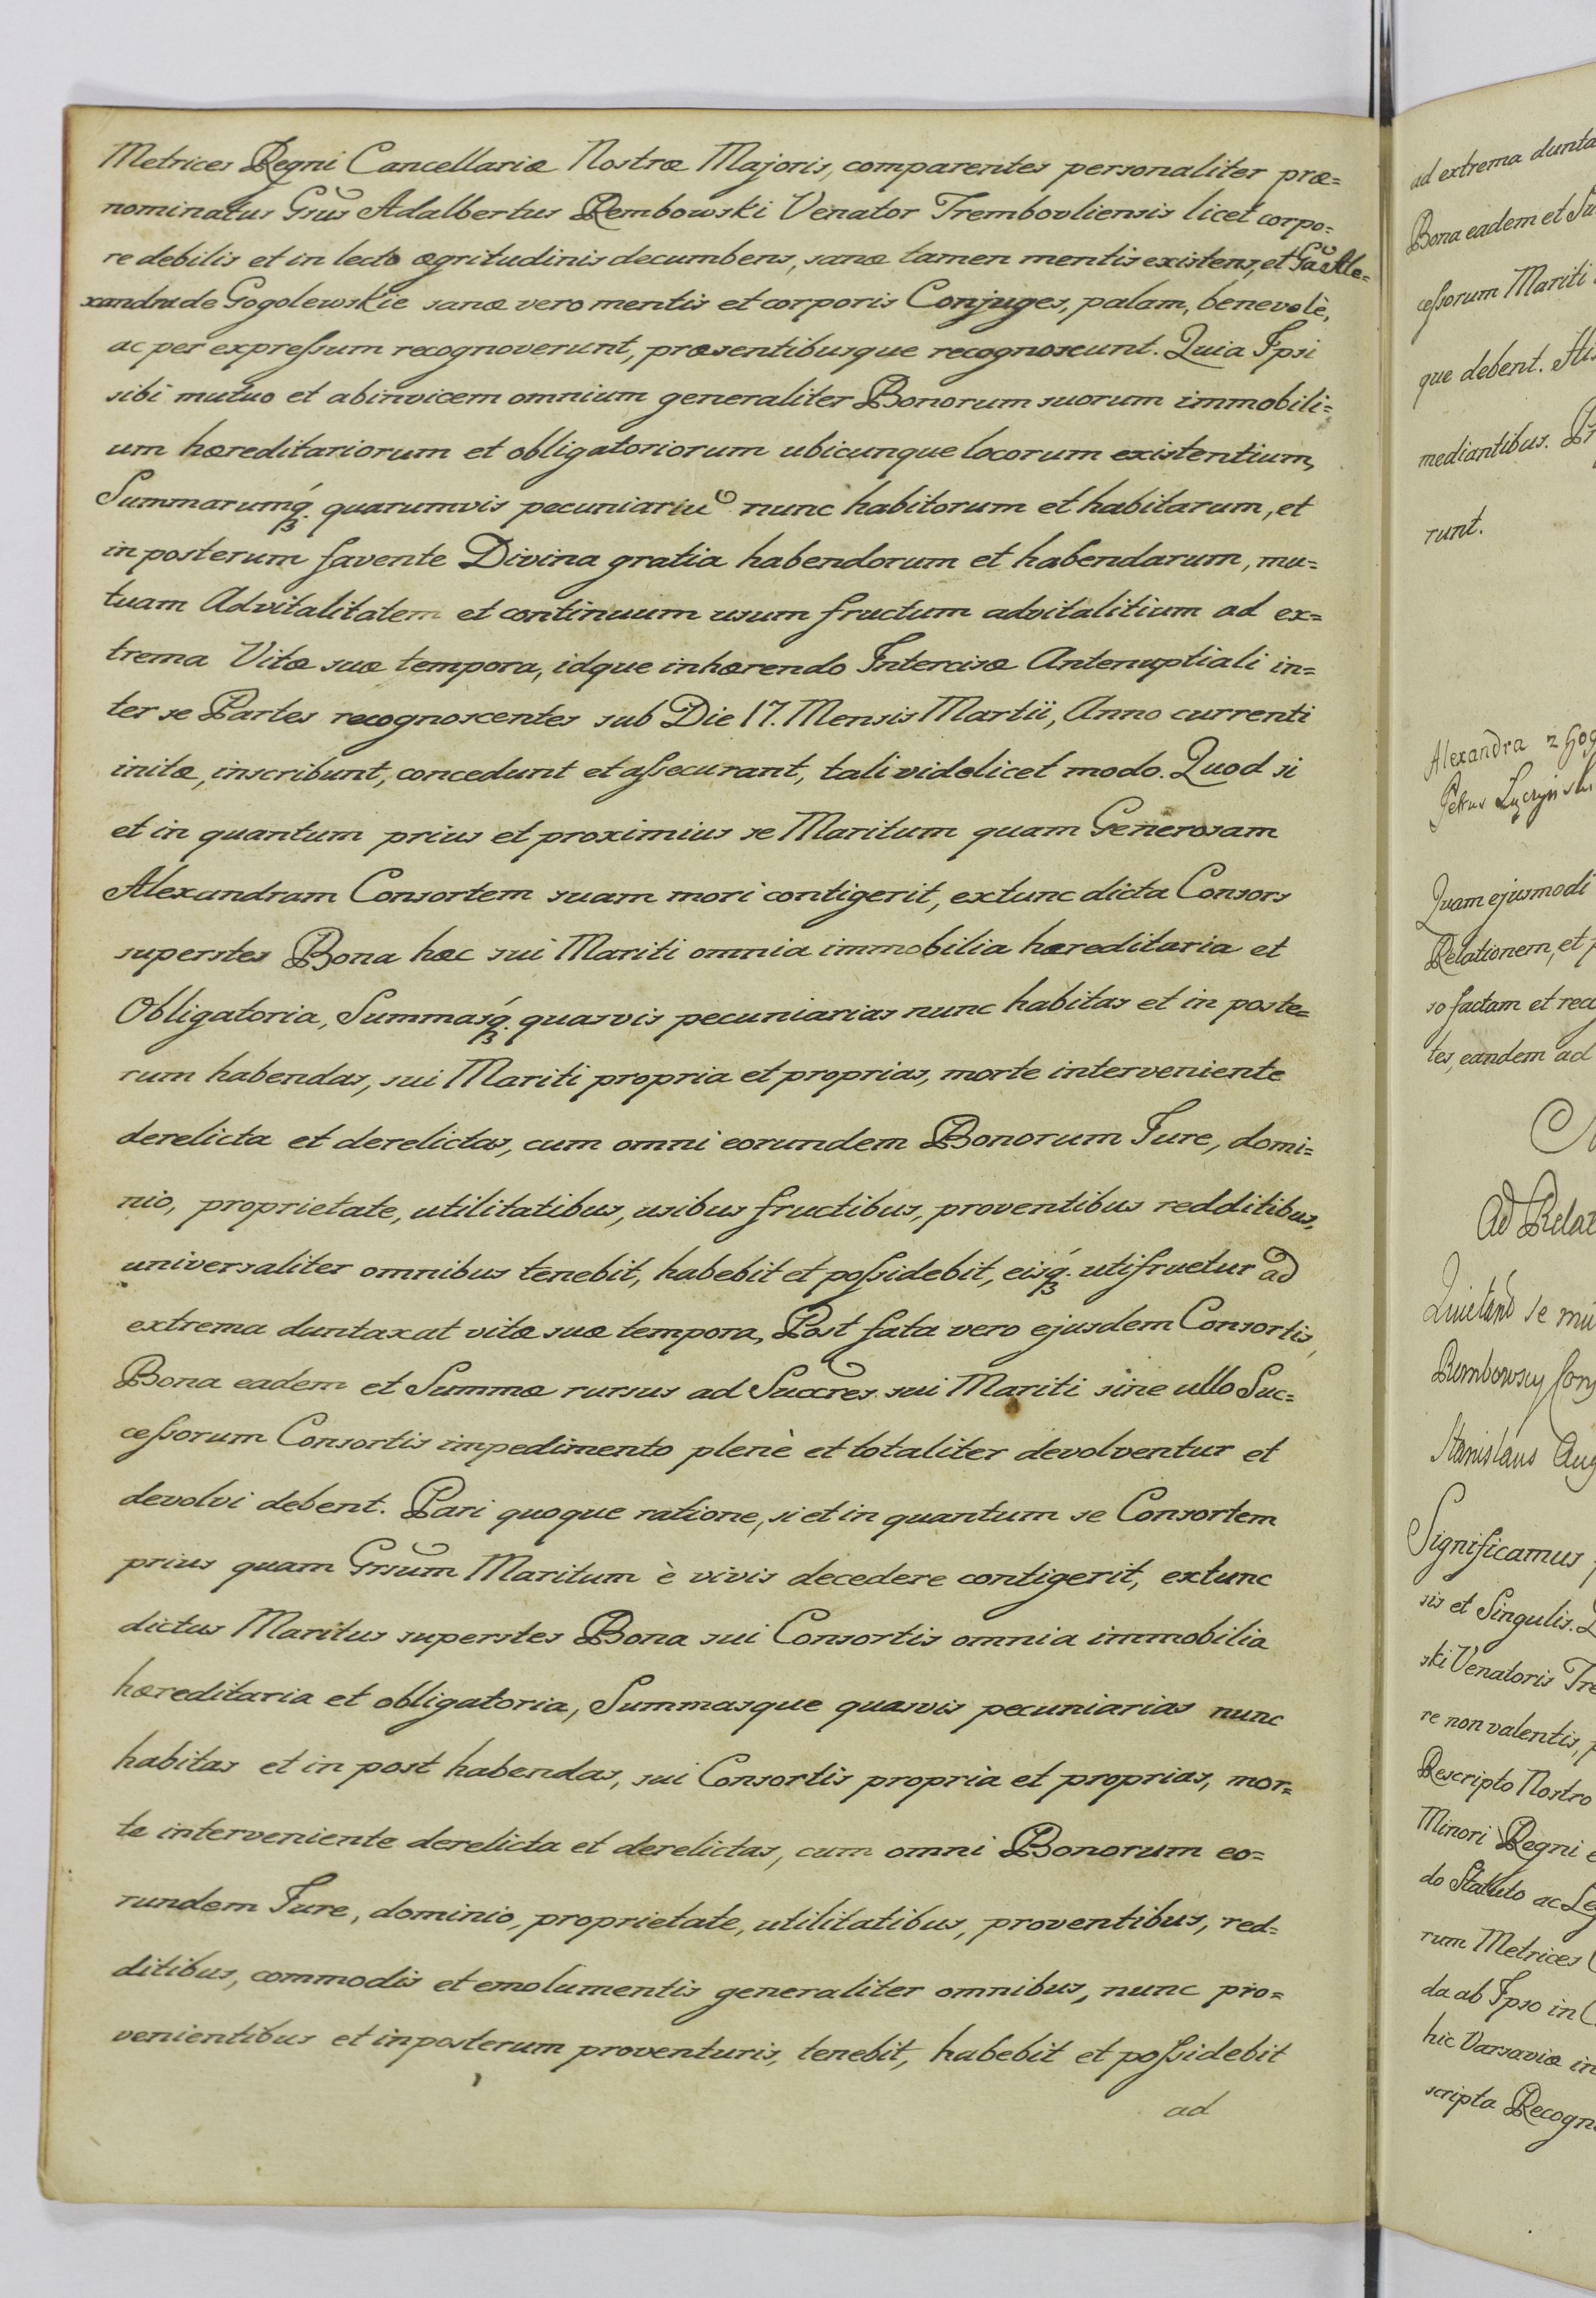 Metrices Regni Cancellariæ Nostræ Majoris, comparentes personaliter præ=
nominatus Gsus Adalbertus Rembowski Venator Trembovliensis licet corpo=
re debilis et in lecto ægritudinis decumbens, sanæ tamen mentis existens, et Ga Ale=
xandra de Gogolewskie sanæ vero mentis et corporis Conjuges, palam, benevolè,
ac per expreſsum recognoverunt, præsentibusque recognoscunt. Quia Ipsi
sibi mutuo et abinvicem omnium generaliter Bonorum suorum immobili=
um hæreditariorum et obligatoriorum ubicunque locorum existentium,
Summarumq́ꝫ quarumvis pecuniariu nunc habitorum et habitarum, et
in posterum favente Divina gratia habendorum et habendarum, mu=
tuam Advitalitatem et continuum usum fructum advitalitium ad ex=
trema Vitæ suæ tempora, idque inhærendo Intercisæ Antenuptiali in=
ter se Partes recognoscentes sub Die 17. Mensis Martii, Anno currenti
initæ, inscribunt, concedunt et aſsecurant, tali videlicet modo. Quod si
et in quantum prius et proximius se Maritum quam Generosam
Alexandram Consortem suam mori contigerit, extunc dicta Consors
superstes Bona hæc sui Mariti omnia immobilia hæreditaria et
Obligatoria, Summasq́ꝫ quasvis pecuniarias nunc habitas et in poste=
rum habendas, sui Mariti propria et proprias, morte interveniente
derelicta et derelictas, cum omni eorundem Bonorum Jure, domi=
nio, proprietate, utilitatibus, usibus fructibus, proventibus redditibus,
universaliter omnibus tenebit, habebit et poſsidebit, eisq́ꝫ utifruetur ad
extrema duntaxat vitæ suæ tempora, Post fata vero ejusdem Consortis,
Bona eadem et Summæ rursus ad Succres. sui Mariti sine ullo Suc=
ceſsorum Consortis impedimento plenè et totaliter devolventur et
devolvi debent. Pari quoque ratione, si et in quantum se Consortem
prius quam Grsum Maritum è vivis decedere contigerit, extunc
dictus Maritus superstes Bona sui Consortis omnia immobilia
hæreditaria et obligatoria, Summasque quasvis pecuniarias nunc
habitas et in post habendas, sui Consortis propria et proprias, mor=
te interveniente derelicta et derelictas, cum omni Bonorum eo=
rundem Jure, dominio, proprietate, utilitatibus, proventibus, red=
ditibus, commodis et emolumentis generaliter omnibus, nunc pro=
venientibus et inposterum proventuris, tenebit, habebit et poſsidebit
ad
ad extrema dunta
Bona eadem et Su
ceſsorum Mariti
que debent.
mediantibus.
runt.
Alexandra z Gog
Petrus
Quam ejusmodi
Relationem, et
so factam et rec
tes, eandem ad
Ad Relat
se mu
Stanislaus Aug
Significamus
sis et Singulis.
ski Venatoris Tre
re non valentis,
Rescripto Nostro
Minori Regni
do Statuto ac Leg
rum Metrices
da ab Ipso in
hic Varsaviæ in
scripta Recogn